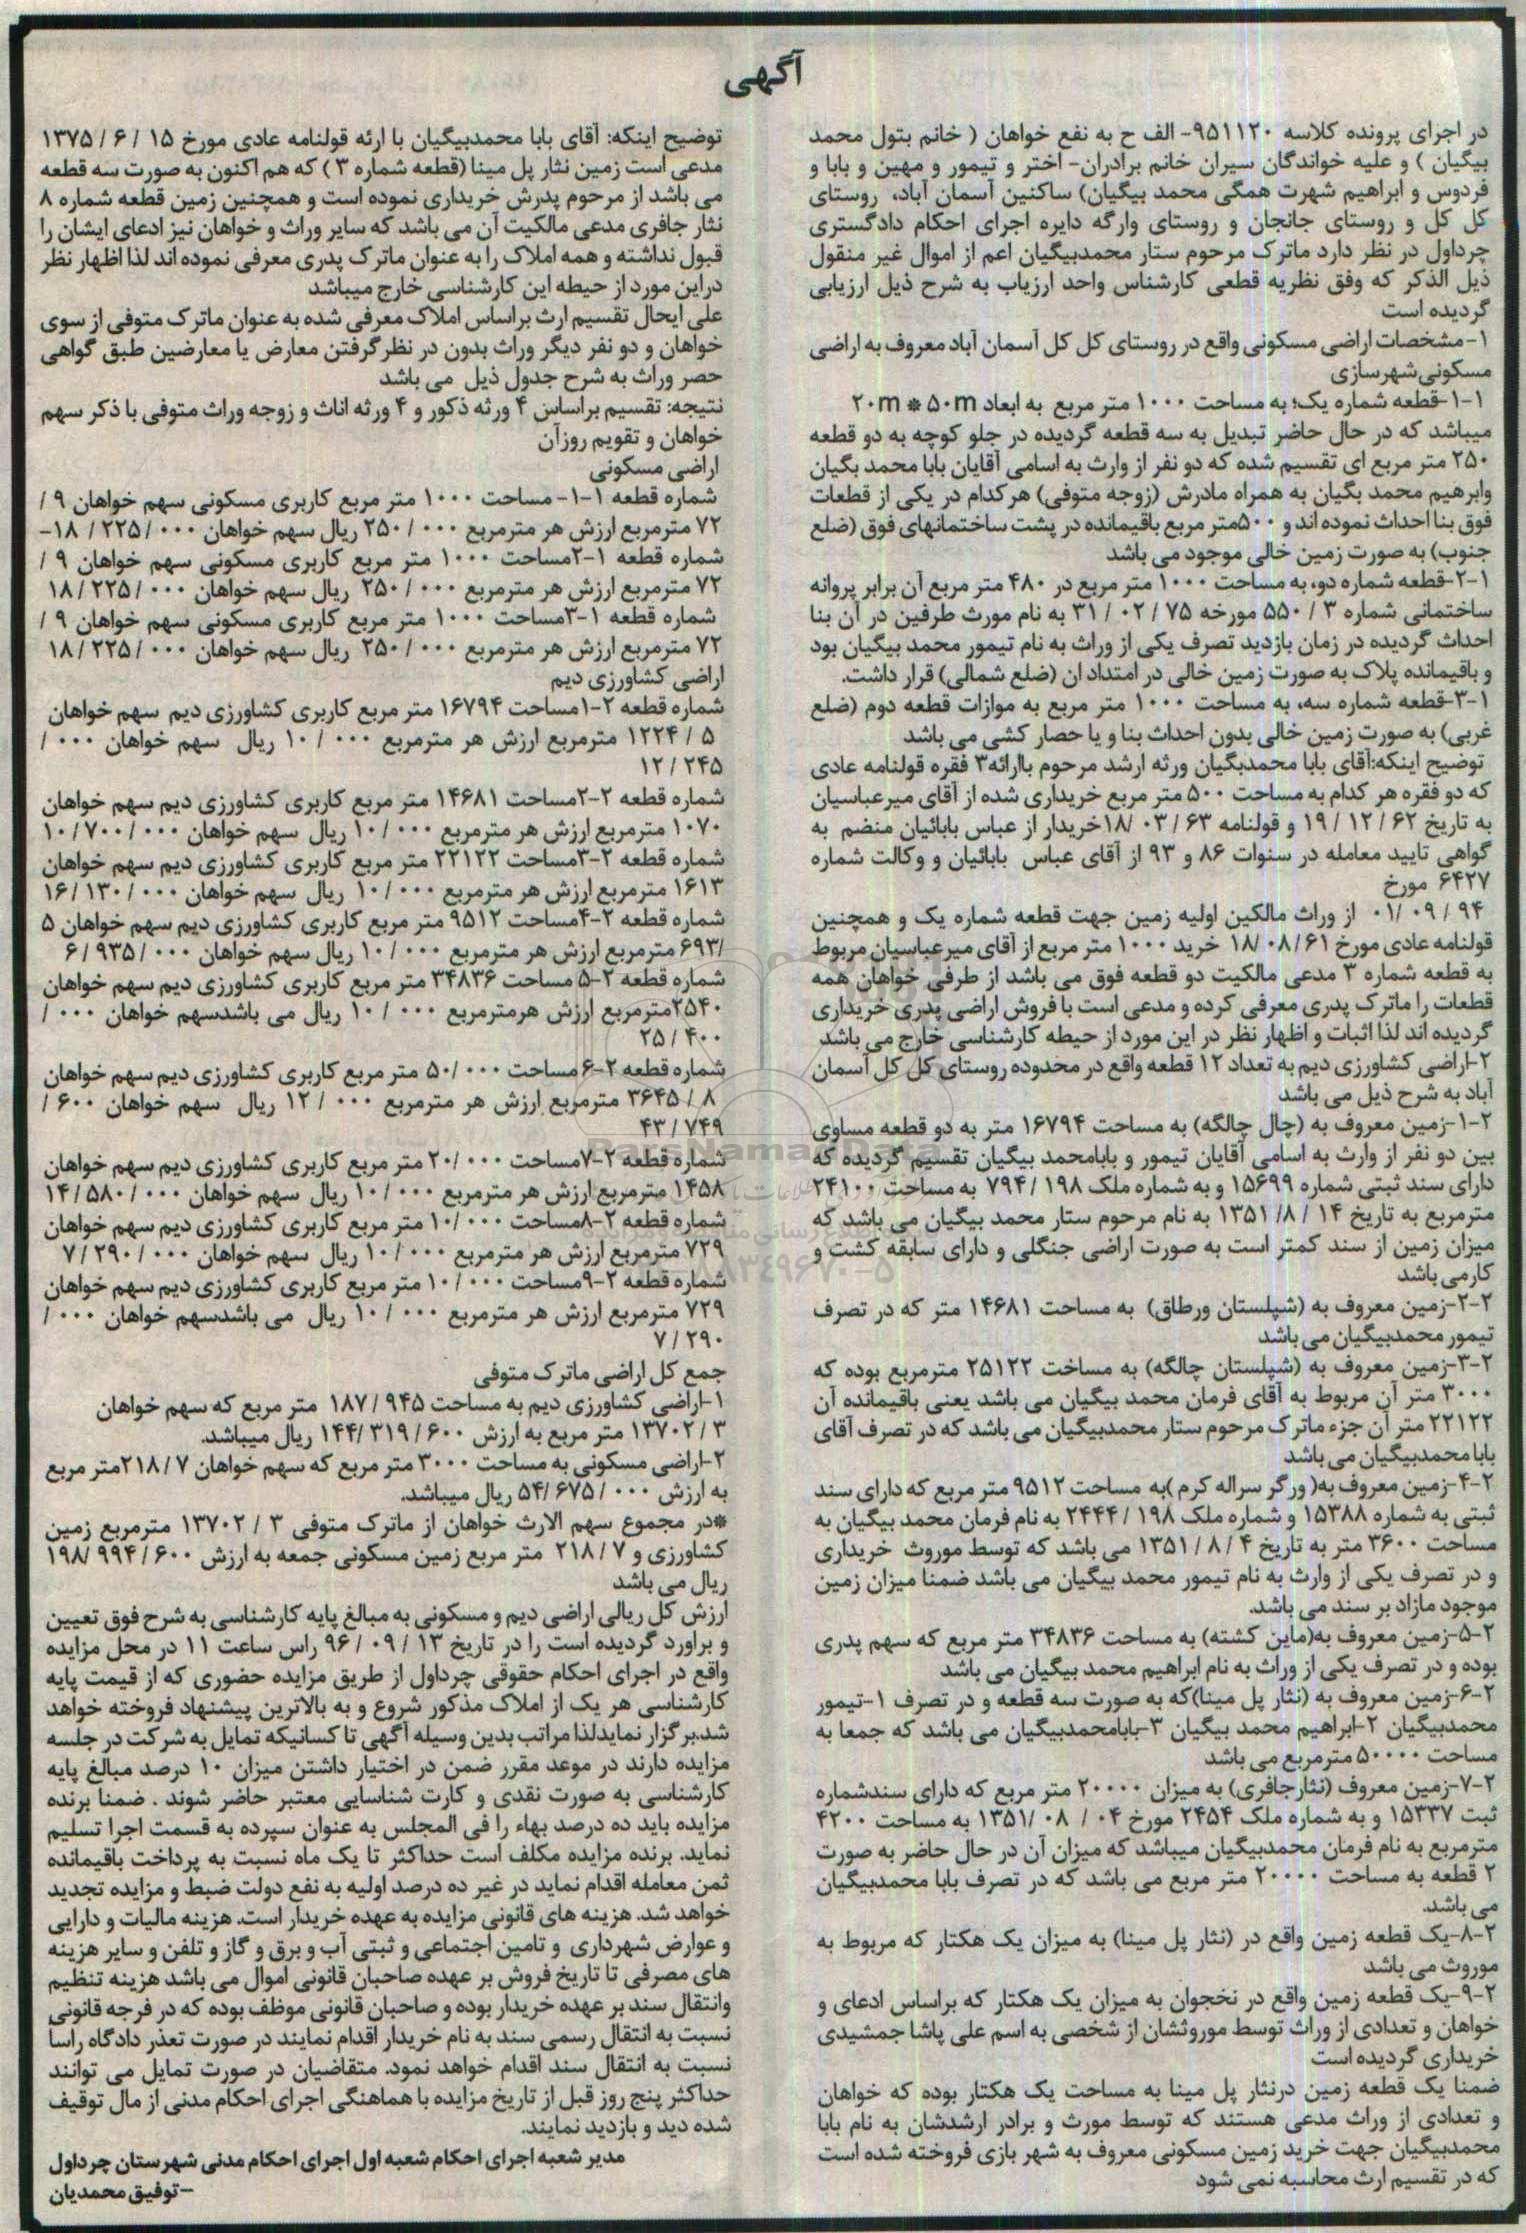 آگهی
در اجرای پرونده کلاسه ۹۵۱۱۲۰- الف ح به نفع خواهان ( خانم بتول محمد
بیگیان ) و علیه خواندگان سیران خانم برادران- اختر و تیمور و مهین و بابا و
فردوس و ابراهیم شهرت همگی محمد بیگیان) ساکنین آسمان آباد، روستای
کل کل و روستای جانجان و روستای وارگه دایره اجرای احکام دادگستری
چرداول در نظر دارد ماترک مرحوم ستار محمدبیگیان اعم از اموال غیر منقول
ذیل الذکر که وفق نظریه قطعی کارشناس واحد ارزیاب به شرح ذیل ارزیابی
گردیده است
۱-مشخصات اراضی مسکونی واقع در روستای کل کل آسمان آباد معروف به اراضی
مسکونی شهرسازی
۱-۱-قطعه شماره یک؛ به مساحت ۱۰۰۰ متر مربع به ابعاد ۲۰m * ۵۰m
میباشد که در حال حاضر تبدیل به سه قطعه گردیده در جلو کوچه به دو قطعه
۲۵۰ متر مربع ای تقسیم شده که دو نفر از وارث به اسامی آقایان بابا محمد بگیان
وابرهیم محمد بگیان به همراه مادرش (زوجه متوفی) هرکدام در یکی از قطعات
فوق بنا احداث نموده اند و ۵۰۰متر مربع باقیمانده در پشت ساختمانهای فوق (ضلع
جنوب) به صورت زمین خالی موجود می باشد
۱-۲-قطعه شماره دو، به مساحت ۱۰۰۰ متر مربع در ۴۸۰ متر مربع آن برابر پروانه
ساختمانی شماره ۳ / ۵۵۰ مورخه ۷۵ / ۰۲ / ۳۱ به نام مورث طرفین در آن بنا
احداث گردیده در زمان بازدید تصرف یکی از وراث به نام تیمور محمد بیگیان بود
و باقیمانده پلاک به صورت زمین خالی در امتداد ان (ضلع شمالی) قرار داشت.
۱-۳-قطعه شماره سه، به مساحت ۱۰۰۰ متر مربع به موازات قطعه دوم (ضلع
غربی) به صورت زمین خالی بدون احداث بنا و یا حصار کشی می باشد
توضیح اینکه:آقای بابا محمدبگیان ورثه ارشد مرحوم باارائه۳ فقره قولنامه عادی
که دو فقره هر کدام به مساحت ۵۰۰ متر مربع خریداری شده از آقای میرعباسیان
به تاریخ ۶۲ / ۱۲ / ۱۹ و قولنامه ۶۳ / ۰۳ /۱۸خریدار از عباس بابائیان منضم به
گواهی تایید معامله در سنوات ۸۶ و ۹۳ از آقای عباس بابائیان و وکالت شماره
۶۴۲۷ مورخ
۹۴ / ۰۹ /۰۱ از وراث مالکین اولیه زمین جهت قطعه شماره یک و همچنین
قولنامه عادی مورخ ۶۱/ ۰۸ /۱۸ خرید ۱۰۰۰ متر مربع از آقای میرعباسیان مربوط
به قطعه شماره ۳ مدعی مالکیت دو قطعه فوق می باشد از طرفی خواهان همه
قطعات را ماترک پدری معرفی کرده و مدعی است با فروش اراضی پدری خریداری
گردیده اند لذا اثبات و اظهار نظر در این مورد از حیطه کارشناسی خارج می باشد
۲-اراضی کشاورزی دیم به تعداد ۱۲ قطعه واقع در محدوده روستای کل کل آسمان
آباد به شرح ذیل می باشد
۲-۱-زمین معروف به (چال چالگه) به مساحت ۱۶۷۹۴ متر به دو قطعه مساوی
بین دو نفر از وارث به اسامی آقایان تیمور و بابامحمد بیگیان تقسیم گردیده که
دارای سند ثبتی شماره ۱۵۶۹۹ و به شماره ملک ۱۹۸ / ۷۹۴ به مساحت ۲۴۱۰۰
مترمربع به تاریخ ۱۴ / ۸/ ۱۳۵۱ به نام مرحوم ستار محمد بیگیان می باشد که
میزان زمین از سند کمتر است به صورت اراضی جنگلی و دارای سابقه کشت و
کارمی باشد
۲-۲-زمین معروف به (شپلستان ورطاق) به مساحت ۱۴۶۸۱ متر که در تصرف
تیمور محمدبیگیان می باشد
۲-۳-زمین معروف به (شپلستان چالگه) به مساخت ۲۵۱۲۲ مترمربع بوده که
۳۰۰۰ متر آن مربوط به آقای فرمان محمد بیگیان می باشد یعنی باقیمانده آن
۲۲۱۲۲ متر آن جزء ماترک مرحوم ستار محمدبیگیان می باشد که در تصرف آقای
بابا محمدبیگیان می باشد
۲-۴-زمین معروف به( ورگر سراله کرم )به مساحت ۹۵۱۲ متر مربع که دارای سند
ثبتی به شماره ۱۵۳۸۸ و شماره ملک ۱۹۸ / ۲۴۴۴ به نام فرمان محمد بیگیان به
مساحت ۳۶۰۰ متر به تاریخ ۴ / ۸ / ۱۳۵۱ می باشد که توسط موروث خریداری
و در تصرف یکی از وارث به نام تیمور محمد بیگیان می باشد ضمنا میزان زمین
موجود مازاد بر سند می باشد.
۲-۵-زمین معروف به(ماین کشته) به مساحت ۳۴۸۳۶ متر مربع که سهم پدری
بوده و در تصرف یکی از وراث به نام ابراهیم محمد بیگیان می باشد
۲-۶-زمین معروف به (نثار پل مینا)که به صورت سه قطعه و در تصرف ۱-تیمور
محمدبیگیان ۲-ابراهیم محمد بیگیان ۳-بابامحمدبیگیان می باشد که جمعا به
مساحت ۵۰۰۰۰ مترمربع می باشد
۲-۷-زمین معروف (نثارجافری) به میزان ۲۰۰۰۰ متر مربع که دارای سندشماره
ثبت ۱۵۳۳۷ و به شماره ملک ۲۴۵۴ مورخ ۰۴ / ۰۸ /۱۳۵۱ به مساحت ۴۲۰۰
مترمربع به نام فرمان محمدبیگیان میباشد که میزان آن در حال حاضر به صورت
۲ قطعه به مساحت ۲۰۰۰۰ متر مربع می باشد که در تصرف بابا محمدبیگیان
می باشد.
۲-۸-یک قطعه زمین واقع در (نثار پل مینا) به میزان یک هکتار که مربوط به
موروث می باشد
۲-۹-یک قطعه زمین واقع در نخجوان به میزان یک هکتار که براساس ادعای و
خواهان و تعدادی از وراث توسط موروثشان از شخصی به اسم علی پاشا جمشیدی
خریداری گردیده است
ضمنا یک قطعه زمین درنثار پل مینا به مساحت یک هکتار بوده که خواهان
و تعدادی از وراث مدعی هستند که توسط مورث و برادر ارشدشان به نام بابا
محمدبیگیان جهت خرید زمین مسکونی معروف به شهر بازی فروخته شده است
که در تقسیم ارث محاسبه نمی شود
توضیح اینکه: آقای بابا محمدبیگیان با ارئه قولنامه عادی مورخ ۱۵ / ۶ / ۱۳۷۵
مدعی است زمین نثار پل مینا (قطعه شماره ۳ ) که هم اکنون به صورت سه قطعه
می باشد از مرحوم پدرش خریداری نموده است و همچنین زمین قطعه شماره ۸
نثار جافری مدعی مالکیت آن می باشد که سایر وراث و خواهان نیز ادعای ایشان را
قبول نداشته و همه املاک را به عنوان ماترک پدری معرفی نموده اند لذا اظهار نظر
دراین مورد از حیطه این کارشناسی خارج میباشد
علی ایحال تقسیم ارث براساس املاک معرفی شده به عنوان ماترک متوفی از سوی
خواهان و دو نفر دیگر وراث بدون در نظرگرفتن معارض یا معارضین طبق گواهی
حصر وراث به شرح جدول ذیل می باشد
نتیجه: تقسیم براساس ۴ ورثه ذکور و ۴ ورثه اناث و زوجه وراث متوفی با ذکر سهم
خواهان و تقویم روزآن
اراضی مسکونی
شماره قطعه ۱-۱- مساحت ۱۰۰۰ متر مربع کاربری مسکونی سهم خواهان ۹ /
۷۲ مترمربع ارزش هر مترمربع ۰۰۰ / ۲۵۰ ریال سهم خواهان ۰۰۰ / ۲۲۵ / ۱۸-
شماره قطعه ۱-۲مساحت ۱۰۰۰ متر مربع کاربری مسکونی سهم خواهان ۹ /
۷۲ مترمربع ارزش هر مترمربع ۰۰۰ / ۲۵۰ ریال سهم خواهان ۰۰۰ / ۲۲۵ / ۱۸
شماره قطعه ۱-۳مساحت ۱۰۰۰ متر مربع کاربری مسکونی سهم خواهان ۹ /
۷۲ مترمربع ارزش هر مترمربع ۰۰۰ / ۲۵۰ ریال سهم خواهان ۰۰۰ / ۲۲۵ / ۱۸
اراضی کشاورزی دیم
شماره قطعه ۲-۱مساحت ۱۶۷۹۴ متر مربع کاربری کشاورزی دیم سهم خواهان
۵ / ۱۲۲۴ مترمربع ارزش هر مترمربع ۰۰۰ / ۱۰ ریال سهم خواهان ۰۰۰ /
۲۴۵ / ۱۲
شماره قطعه ۲-۲مساحت ۱۴۶۸۱ متر مربع کاربری کشاورزی دیم سهم خواهان
۱۰۷۰ مترمربع ارزش هر مترمربع ۰۰۰ / ۱۰ ریال سهم خواهان ۰۰۰ / ۷۰۰ / ۱۰
شماره قطعه ۲-۳مساحت ۲۲۱۲۲ متر مربع کاربری کشاورزی دیم سهم خواهان
۱۶۱۳ مترمربع ارزش هر مترمربع ۰۰۰ / ۱۰ ریال سهم خواهان ۰۰۰ / ۱۳۰ / ۱۶
شماره قطعه ۲-۴مساحت ۹۵۱۲ متر مربع کاربری کشاورزی دیم سهم خواهان ۵
/۶۹۳ مترمربع ارزش هر مترمربع ۰۰۰ / ۱۰ ریال سهم خواهان ۰۰۰ / ۹۳۵ / ۶
شماره قطعه ۲-۵ مساحت ۳۴۸۳۶ متر مربع کاربری کشاورزی دیم سهم خواهان
۲۵۴۰مترمربع ارزش هرمترمربع ۰۰۰ / ۱۰ ریال می باشدسهم خواهان ۰۰۰ /
۴۰۰ / ۲۵
شماره قطعه ۲-۶ مساحت ۰۰۰ /۵۰ متر مربع کاربری کشاورزی دیم سهم خواهان
۸ / ۳۶۴۵ مترمربع ارزش هر مترمربع ۰۰۰ / ۱۲ ریال سهم خواهان ۶۰۰ /
۷۴۹ / ۴۳
شماره قطعه ۲-۷مساحت ۰۰۰ /۲۰ متر مربع کاربری کشاورزی دیم سهم خواهان
۱۴۵۸ مترمربع ارزش هر مترمربع ۰۰۰ / ۱۰ ریال سهم خواهان ۰۰۰ / ۵۸۰ / ۱۴
شماره قطعه ۲-۸مساحت ۰۰۰ /۱۰ متر مربع کاربری کشاورزی دیم سهم خواهان
۷۲۹ مترمربع ارزش هر مترمربع ۰۰۰ / ۱۰ ریال سهم خواهان ۰۰۰ / ۲۹۰ / ۷
شماره قطعه ۲-۹مساحت ۰۰۰ / ۱۰ متر مربع کاربری کشاورزی دیم سهم خواهان
۷۲۹ مترمربع ارزش هر مترمربع ۰۰۰ / ۱۰ ریال می باشدسهم خواهان ۰۰۰ /
۲۹۰ / ۷
جمع کل اراضی ماترک متوفی
۱-اراضی کشاورزی دیم به مساحت ۹۴۵ / ۱۸۷ متر مربع که سهم خواهان
۳ / ۱۳۷۰۲ متر مربع به ارزش ۶۰۰ / ۳۱۹ /۱۴۴ ریال میباشد.
۲-اراضی مسکونی به مساحت ۳۰۰۰ متر مربع که سهم خواهان ۷ / ۲۱۸متر مربع
به ارزش ۰۰۰ / ۶۷۵ /۵۴ ریال میباشد.
*در مجموع سهم الارث خواهان از ماترک متوفی ۳ / ۱۳۷۰۲ مترمربع زمین
کشاورزی و ۷ / ۲۱۸ متر مربع زمین مسکونی جمعه به ارزش ۶۰۰ / ۹۹۴ /۱۹۸
ریال می باشد
ارزش کل ریالی اراضی دیم و مسکونی به مبالغ پایه کارشناسی به شرح فوق تعیین
و براورد گردیده است را در تاریخ ۱۳ / ۰۹ / ۹۶ راس ساعت ۱۱ در محل مزایده
واقع در اجرای احکام حقوقی چرداول از طریق مزایده حضوری که از قیمت پایه
کارشناسی هر یک از املاک مذکور شروع و به بالاترین پیشنهاد فروخته خواهد
شد.برگزار نمایدلذا مراتب بدین وسیله آگهی تا کسانیکه تمایل به شرکت در جلسه
مزایده دارند در موعد مقرر ضمن در اختیار داشتن میزان ۱۰ درصد مبالغ پایه
کارشناسی به صورت نقدی و کارت شناسایی معتبر حاضر شوند . ضمنا برنده
مزایده باید ده درصد بهاء را فی المجلس به عنوان سپرده به قسمت اجرا تسلیم
نماید. برنده مزایده مکلف است حداکثر تا یک ماه نسبت به پرداخت باقیمانده
ثمن معامله اقدام نماید در غیر ده درصد اولیه به نفع دولت ضبط و مزایده تجدید
خواهد شد. هزینه های قانونی مزایده به عهده خریدار است. هزینه مالیات و دارایی
و عوارض شهرداری و تامین اجتماعی و ثبتی آب و برق و گاز و تلفن و سایر هزینه
های مصرفی تا تاریخ فروش بر عهده صاحبان قانونی اموال می باشد هزینه تنظیم
وانتقال سند بر عهده خریدار بوده و صاحبان قانونی موظف بوده که در فرجه قانونی
نسبت به انتقال رسمی سند به نام خریدار اقدام نمایند در صورت تعذر دادگاه راسأ
نسبت به انتقال سند اقدام خواهد نمود. متقاضیان در صورت تمایل می توانند
حداکثر پنج روز قبل از تاریخ مزایده با هماهنگی اجرای احکام مدنی از مال توقیف
شده دید و بازدید نمایند.
مدیر شعبه اجرای احکام شعبه اول اجرای احکام مدنی شهرستان چرداول
-توفیق محمدیان